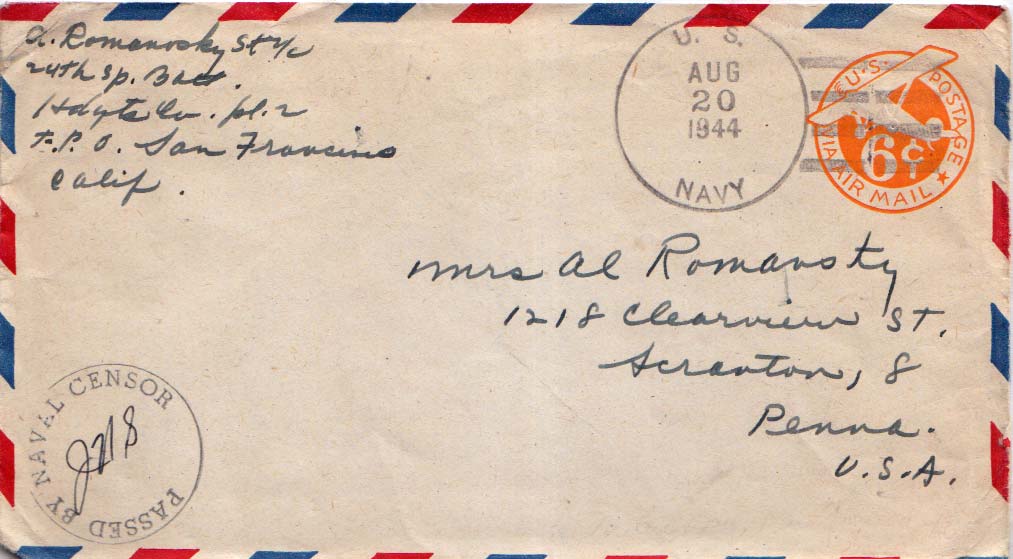 A. Romanosky St 2/c
24th Sp. Batt.
Hdqts Co. pl. 2
F.P.O. San Francisco
Calif.
U. S.
AUG
20
1944
NAVY
U.S. POSTAGE
6¢
VIA AIR MAIL
Mrs Al Romanosky
1218 Clearview St.
Scranton, 8
Penna.
U.S.A.
PASSED BY NAVAL CENSOR